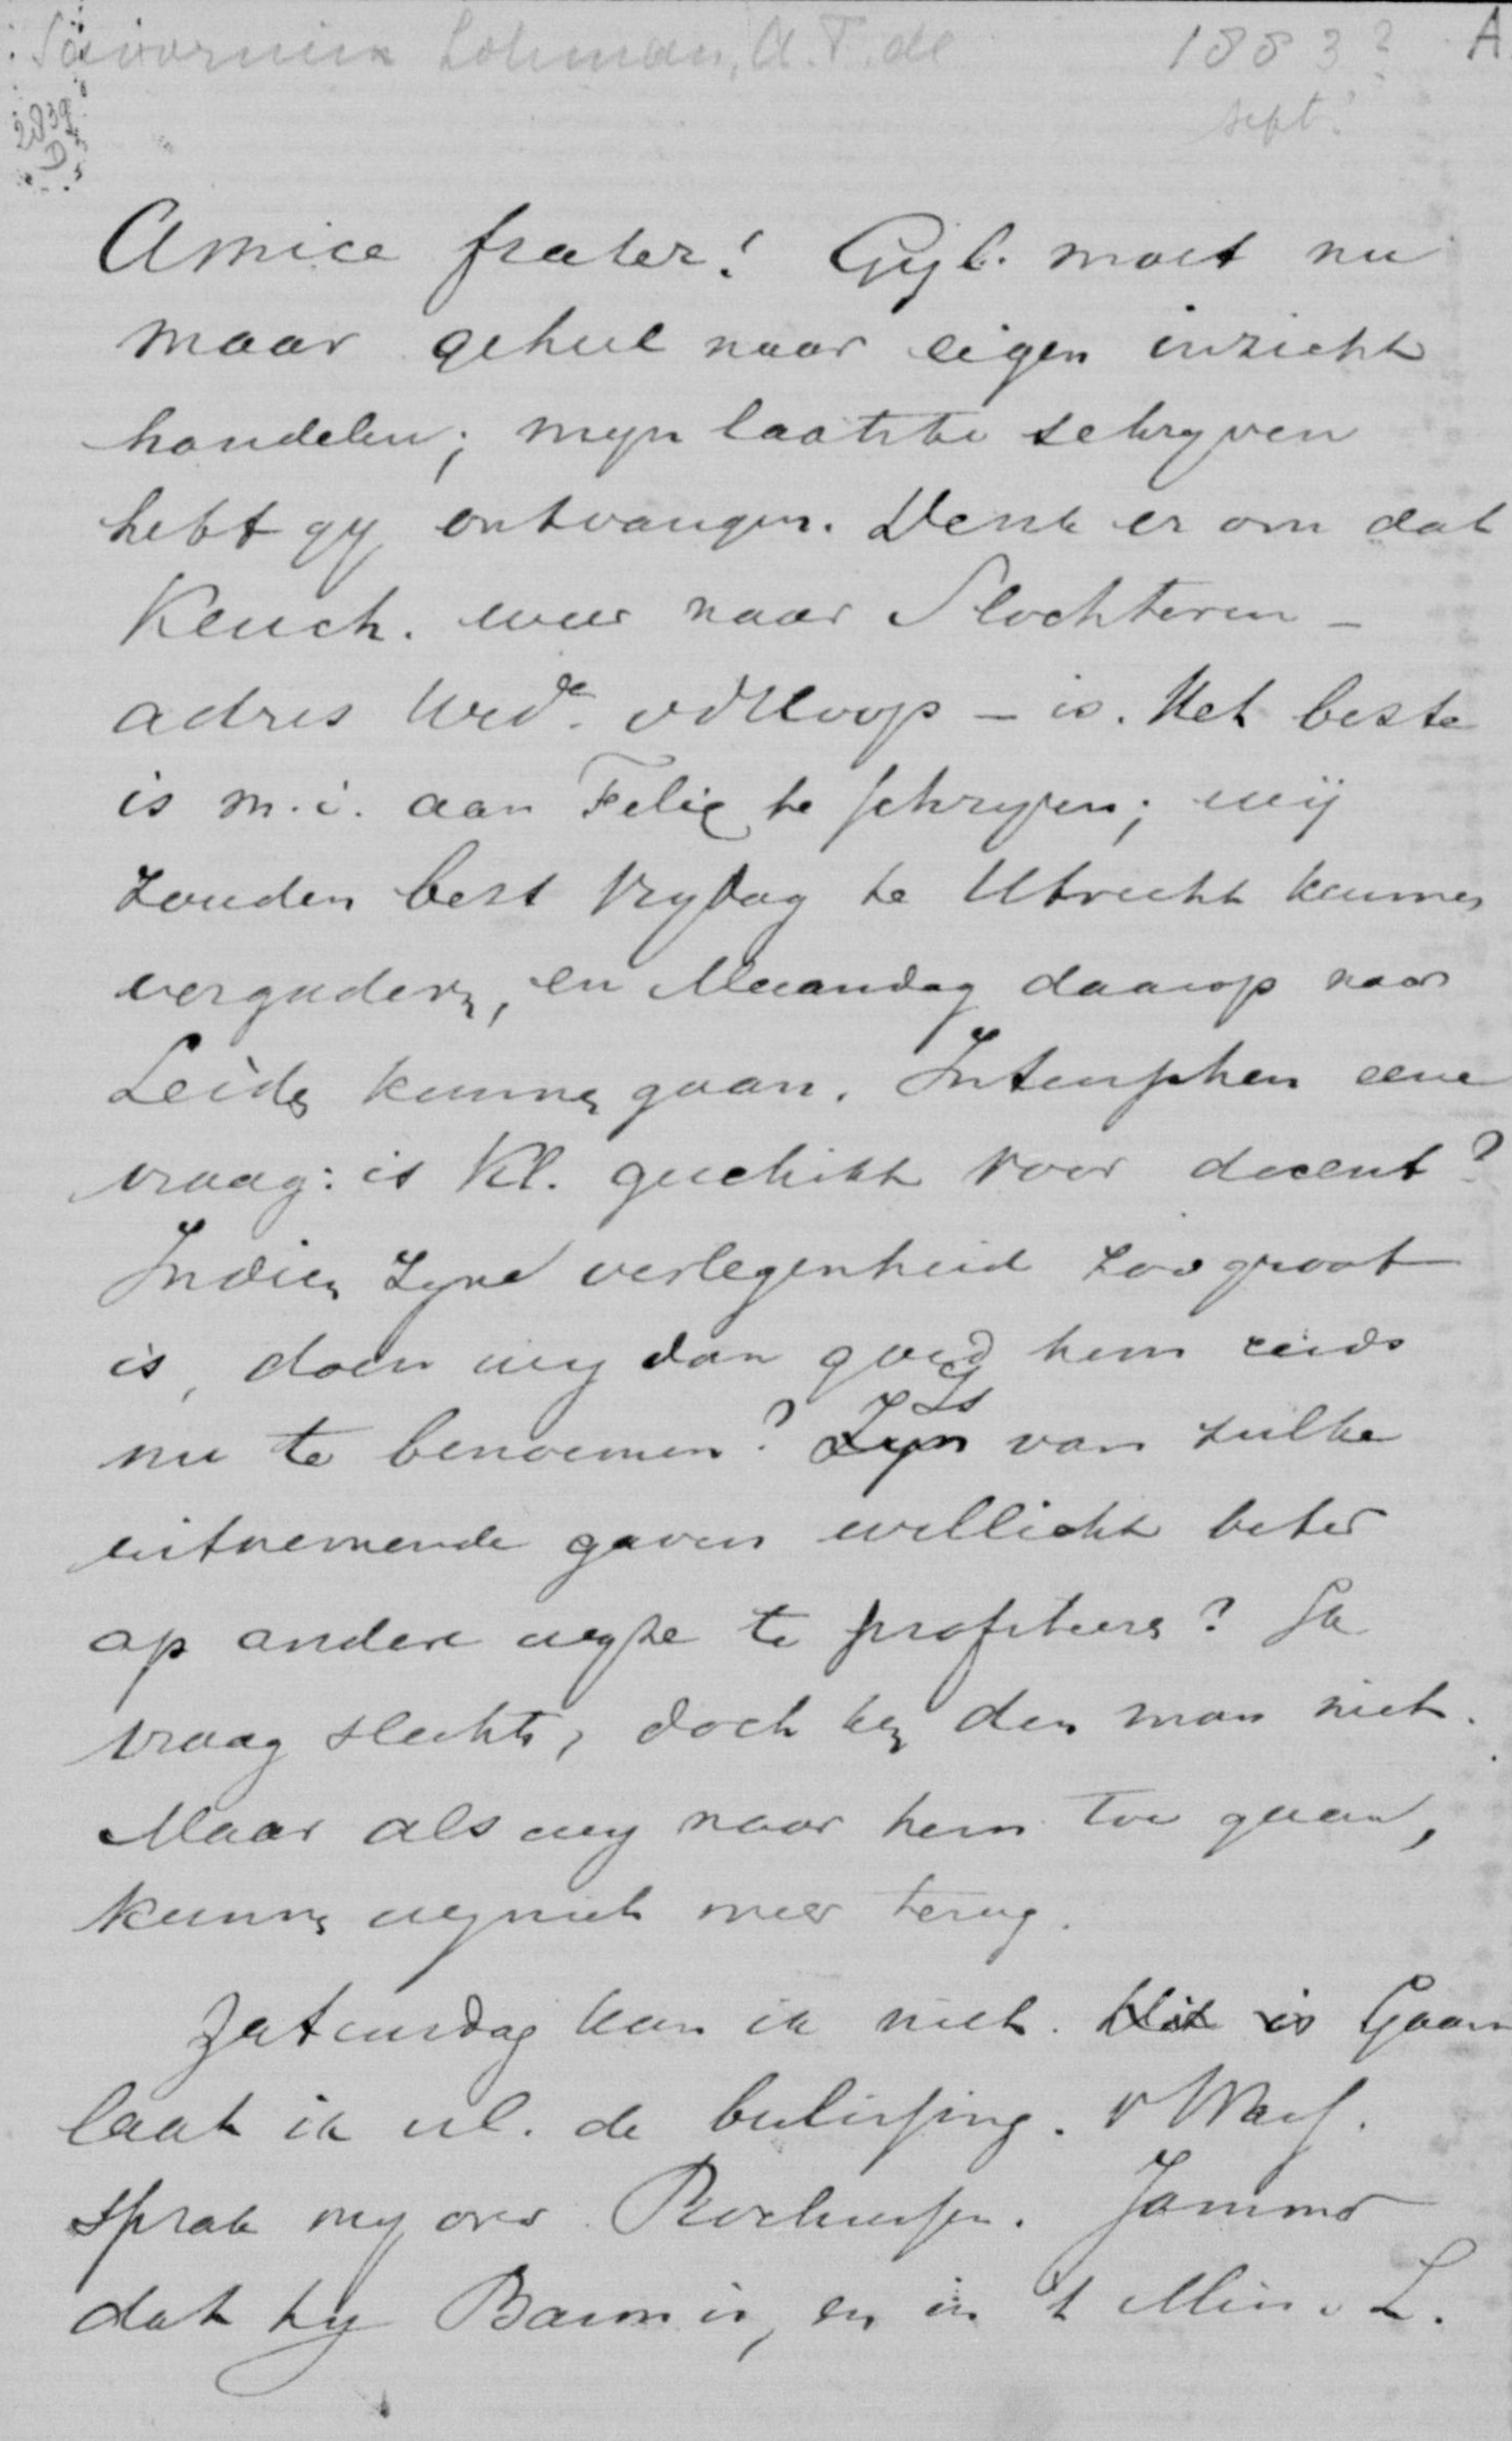 Savornin Lohman, A. F. de 1883? A
sept?
2839
D
Amice frater! Gijl. moet nu
maar geheel naar eigen inzicht
handelen; mijn laatste schryven
hebt gy ontvangen. Denk er om dat
Keuch. weer naar Slochteren –
adres Wed.e vdKloop – is. Het beste
is m.i. aan Felix te schryven; wij
zouden best Vrydag te Utrecht kunnen
vergaderen, en Maandag daarop naar
Leiden kunnen gaan. Intusschen eene
vraag: is Kl. geschikt voor docent?
Indien zyne verlegenheid zoo groot
is, doen wy dan goed hem reeds
nu te benoemen? Zyn Is van zulke
uitnemende gaven wellicht beter
op andere wyze te profiteeren? Ik
vraag slechts, doch ken den man niet.
Maar als wy naar hem toe gaan,
kunnen wy niet meer terug.
Zaturdag kan ik niet. Dit is Gaarn
laat ik ul. de beslissing.
sprak my over Rochussen. Jammer
dat hy Baron is, en in 't Min. L.